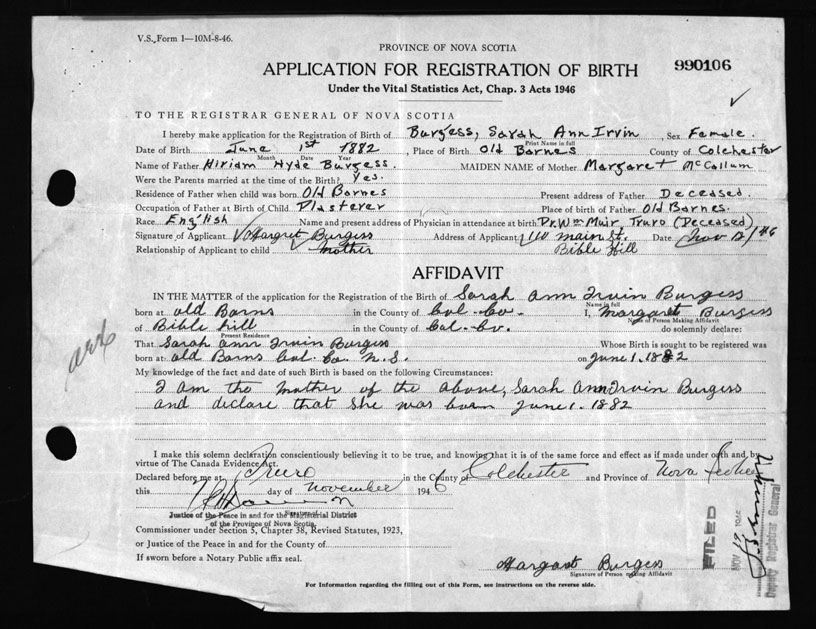 V.S. Form 1—10M-8-46.
PROVINCE OF NOVA SCOTIA
990106
APPLICATION FOR REGISTRATION OF BIRTH
Under the Vital Statistics Act, Chap. 3 Acts 1946
TO THE REGISTRAR GENERAL OF NOVA SCOTIA
I hereby make application for the Registration of Birth of Burgess, Sarah Ann Irvin , Sex Female.
Print Name in full
Date of Birth June 1st 1882 , Place of Birth Old Barnes County of Colchester
Month Date Year
Name of Father Hiriam Hyde Burgess. MAIDEN NAME of Mother Margaret McCollum
Were the Parents married at the time of the Birth? Yes.
Residence of Father when child was born Old Barnes Present address of Father Deceased.
Occupation of Father at Birth of Child Plasterer Place of birth of Father Old Barnes.
Race English Name and present address of Physician in attendance at birth Dr. Wm Muir Truro (Deceased)
Signature of Applicant Margret Burgess Address of Applicant 110 main St. Date Nov 12/46
Relationship of Applicant to child mother Bible Hill
AFFIDAVIT
IN THE MATTER of the application for the Registration of the Birth of Sarah Ann Irvin Burgess
Name in full
born at old Barns in the County of Col. Co. I, Margaret Burgess
Name of Person Making Affidavit
of Bible hill in the County of Col. Co. do solemnly declare:
Present Residence
That Sarah Ann Irvin Burgess Whose Birth is sought to be registered was
born at old Barns Col. Co. N.S. on June 1. 1882
My knowledge of the fact and date of such Birth is based on the following Circumstances:
I am the mother of the above, Sarah Ann Irvin Burgess
and declare that she was born June 1. 1882
I make this solemn declaration conscientiously believing it to be true, and knowing that it is of the same force and effect as if made under oath and, by
virtue of The Canada Evidence Act.
Declared before me at Truro in the County of Colchester and Province of Nova Scotia
this day of November 1946
Justice of the Peace in and for the Magisterial District
of the Province of Nova Scotia.
Commissioner under Section 5, Chapter 38, Revised Statutes, 1923,
or Justice of the Peace in and for the County of
If sworn before a Notary Public affix seal.
Margaret Burgess
Signature of Person making Affidavit
For Information regarding the filling out of this Form, see instructions on the reverse side.
FILED
Deputy Registrar General